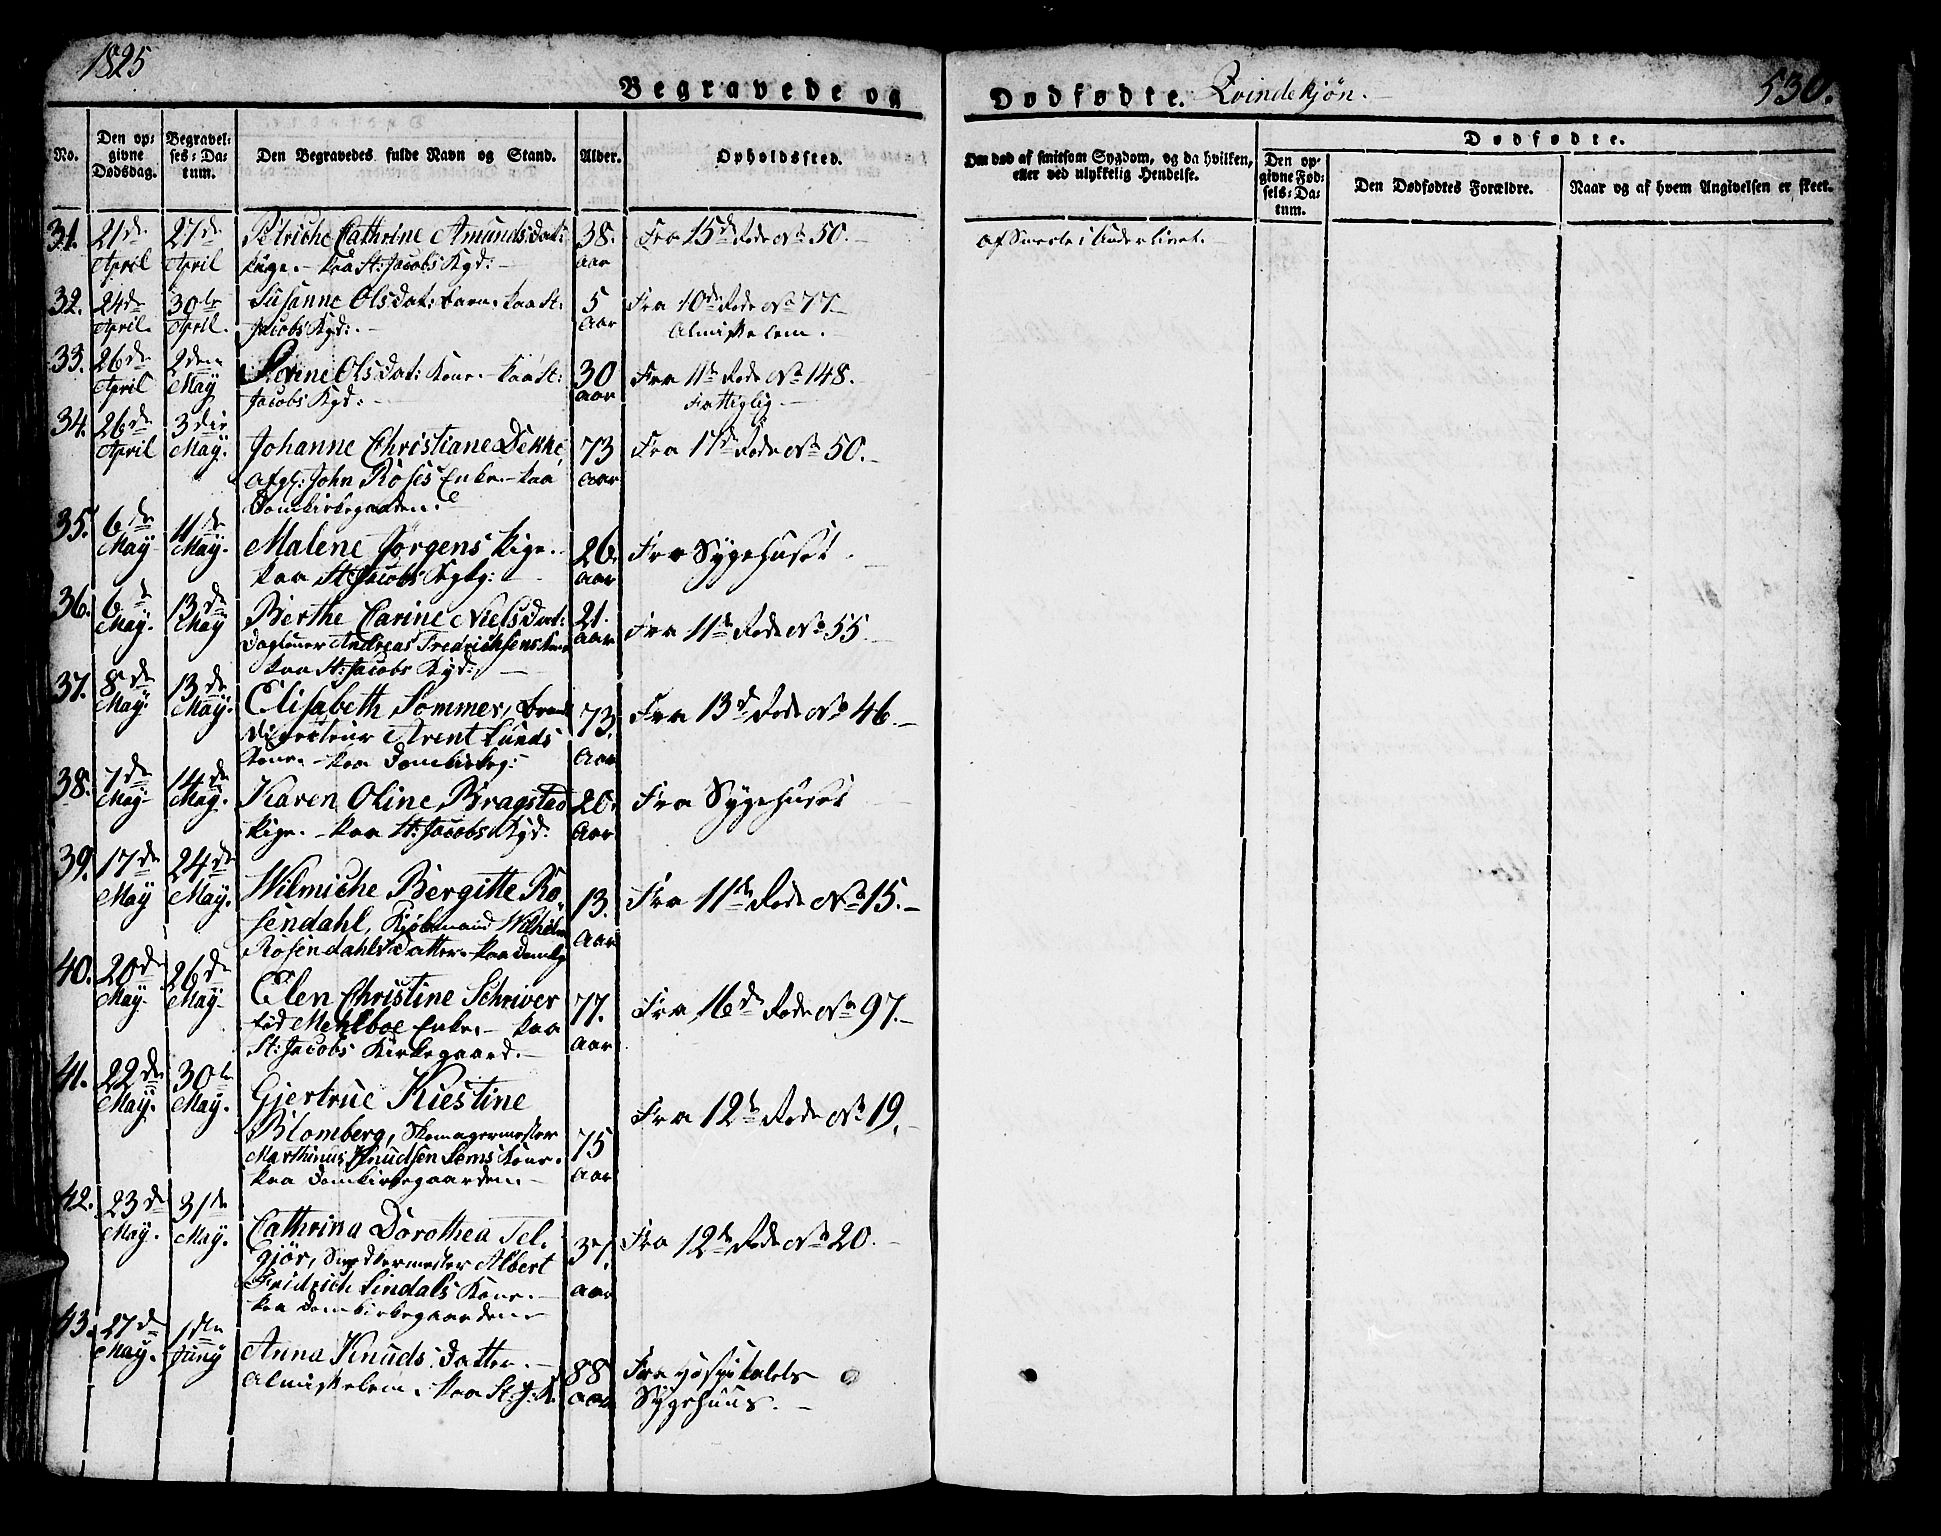 1825
Begravede og Dødfødte. Qvindekjøn.
530.
No.
Den op-
givne
Dødsdag.
Begravel-
ses-Da-
tum.
Den Begravedes fulde Navn og Stand.
Alder.
Opholdssted.
Om død af smitsom Sygdom, og da hvilken,
eller ved ulykkelig Hendelse.
Dødfødte.
Den op-
givne Fød-
sels-Da-
tum.
Den Dødfødtes Forældre.
Naar og af hvem Angivelsen er skeet.
31. 21de April 27de April
Petriche Cathrine Amundsdat:
Pige. - paa St: Jacobs Kgd: -
38. Aar
Fra 15de Rode No 50. -
af Smerte i Underlivet. -
32. 24de April. 30te April.
Susanne Olsdat: Barn. paa St:
Jacobs Kgd: -
5 Aar
Fra 10de Rode No 77. -
Almisselem.
33. 26de April 2den May
Olsdat: Kone. - paa St:
Jacobs Kgd: -
30 Aar
Fra 11te Rode No 148. -
Fattiglig -
34. 26de April 3die May.
Johanne Christiane Dekke,
afgl: John Roses Enke. - paa
Domkirkegaarden.
73 Aar
Fra 17de Rode No 50. -
35. 6de May 11de May.
Malene Jørgens Pige. -
paa St: Jacobs Kgbg: -
26 Aar
Fra Sygehuset.
36. 6de May. 13de May
Berthe Carine Nielsdat:
Dagleier Andreas Fredrichsens Kone
paa St: Jacobs Kgd: -
21. Aar
Fra 11te Rode No 55. -
37. 8de May. 13de May.
Elisabeth Sommer, Brand
Directeur Arent Lunds
Kone. - paa Domkirkeg:
73. Aar
Fra 13de Rode No 46. -
38. 7de May 14de May.
Karen Oline Bragstad
Pige. - paa St: Jacobs Kgd:
20. Aar
Fra Sygehuset
39. 17de May 24de May.
Wilmiche Bergitte Ro-
sendahl, Kjøbmand Wilhelm
Rosendahls Datter. - paa Domkg
13. Aar
Fra 11te Rode No 15. -
40. 20de May. 26de May.
Elen Christine Schriver
fød Mehlboe Enke. - paa
St: Jacobs Kirkegaard. -
77. Aar
Fra 16de Rode No 97. -
41. 22de May. 30te May.
Gjertrue Kiestine
Blomberg, Skomagermester
Marthinus Knudsen Lems Kone.
paa Domkirkegaarden. -
75 Aar
Fra 12te Rode No 19. -
42. 23de May. 31te May.
Cathrina Dorothea Tel-
gjør, Snedkermester Albert
Fridrich Lindals Kone. -
paa Domkirkegaarden. -
37. Aar
Fra 12te Rode No 20. -
43. 27de May. 1ste Juny
Anna Knuds: datter. -
Almisselem. paa St: J: K.
88 Aar
Fra Hospitalets
Sygehuus. -